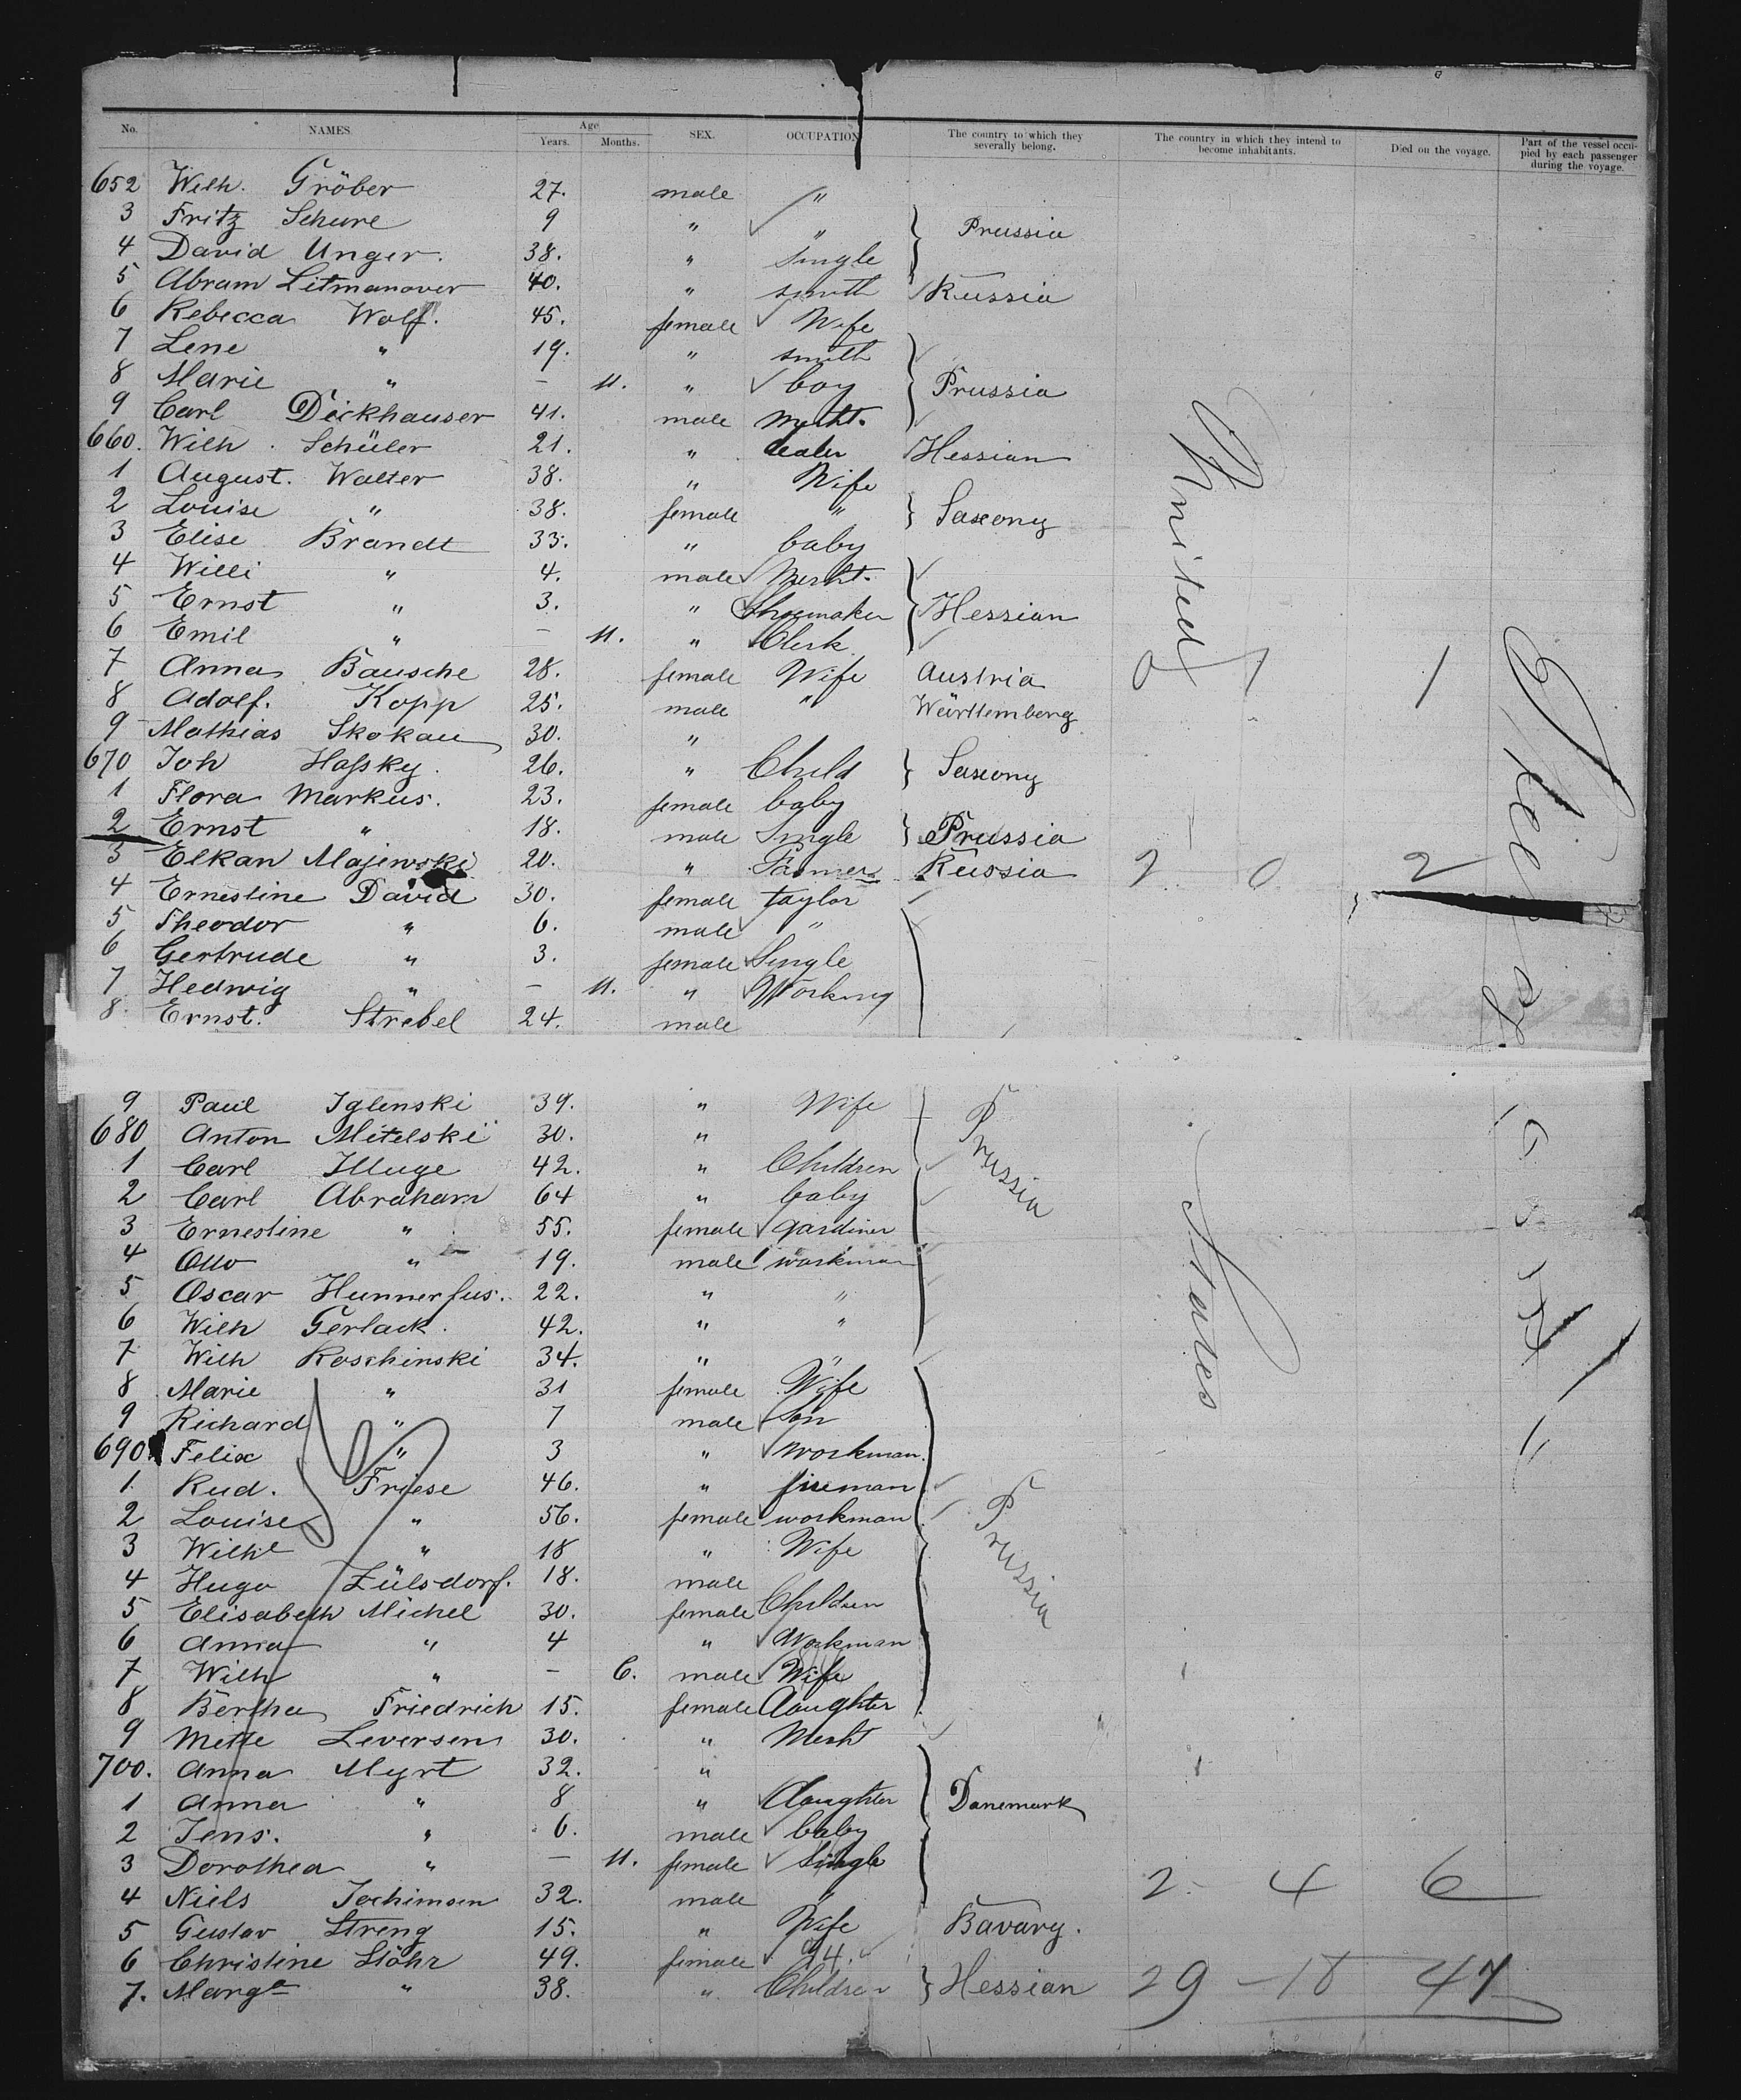 No. NAMES. Age Years. Months. SEX. OCCUPATION The country to which they severally belong. The country in which they intend to become inhabitants. Died on the voyage. Part of the vessel occupied by each passenger during the voyage.
652 Wilh. Gröber 27. male "
3 Fritz Schure 9 " " } Prussia
4 David Unger. 38. " Single
5 Abram Litmanover 40. " smith Russia
6 Rebecca Wolf. 45. female Wife
7 Lene " 19. " smith
8 Marie " – 11. " boy } Prussia
9 Carl Dickhauser 41. male Mrcht.
660. Wilh. Schüler 21. " dealer Hessian
1 August. Walter 38. " Wife
2 Louise " 38. female " } Saxony
3 Elise Brandt 33. " baby
4 Willi " 4. male Mercht.
5 Ernst " 3. " Shoemaker } Hessian
6 Emil " – 11. " Clerk
7 Anna Bausche 28. female Wife Austria 0 1 1
8 Adolf. Kopp 25. male " Württemberg
9 Mathias Skokau 30. "
670 Joh Hafsky. 26. " Child } Saxony
1 Flora Markus. 23. female baby
2 Ernst " 18. male Single } Prussia
3 Elkan Majewski 20. " Farmer Russia 2 0 2
4 Ernestine David 30. female taylor
5 Theodor " 6. male "
6 Gertrude " 3. female Single
7 Hedwig " – 11. " Working
8. Ernst. Strebel 24. male
9 Paul Iglenski 39. " Wife Prussia
680 Anton Mitelski 30. "
1 Carl Illuge 42. " Children
2 Carl Abraham 64 " baby
3 Ernestine " 55. female gardiner
4 Otto " 19. male workman
5 Oscar Hunnerfus. 22. " "
6 Wilh Gerlack. 42. " "
7 Wilh Roschinski 34. " "
8 Marie " 31 female Wife
9 Richard " 7 male Son
690 Felix " 3 " Workman.
1. Rud. Friese 46. " fireman
2 Louise " 56. female workman Prussia
3 Wilhe " 18 " Wife
4 Hugo Zülsdorf. 18. male
5 Elisabeth Michel 30. female Children
6 Anna " 4 " Workman
7 Wilh " – 6. male Wife
8 Bertha Friedrich 15. female daughter
9 Mette Leversen 30. " Mercht
700. Anna Myrt 32. "
1 Anna " 8 " daughter } Danemark
2 Jens. " 6. male baby
3 Dorothea " – 11. female Single 2 - 4 6
4 Niels Jochimsen 32. male "
5 Gustav Streng 15. " Wife Bavary.
6 Christine Stöhr 49. female
7. Margte " 38. " Children } Hessian 29 - 18 47
United
States